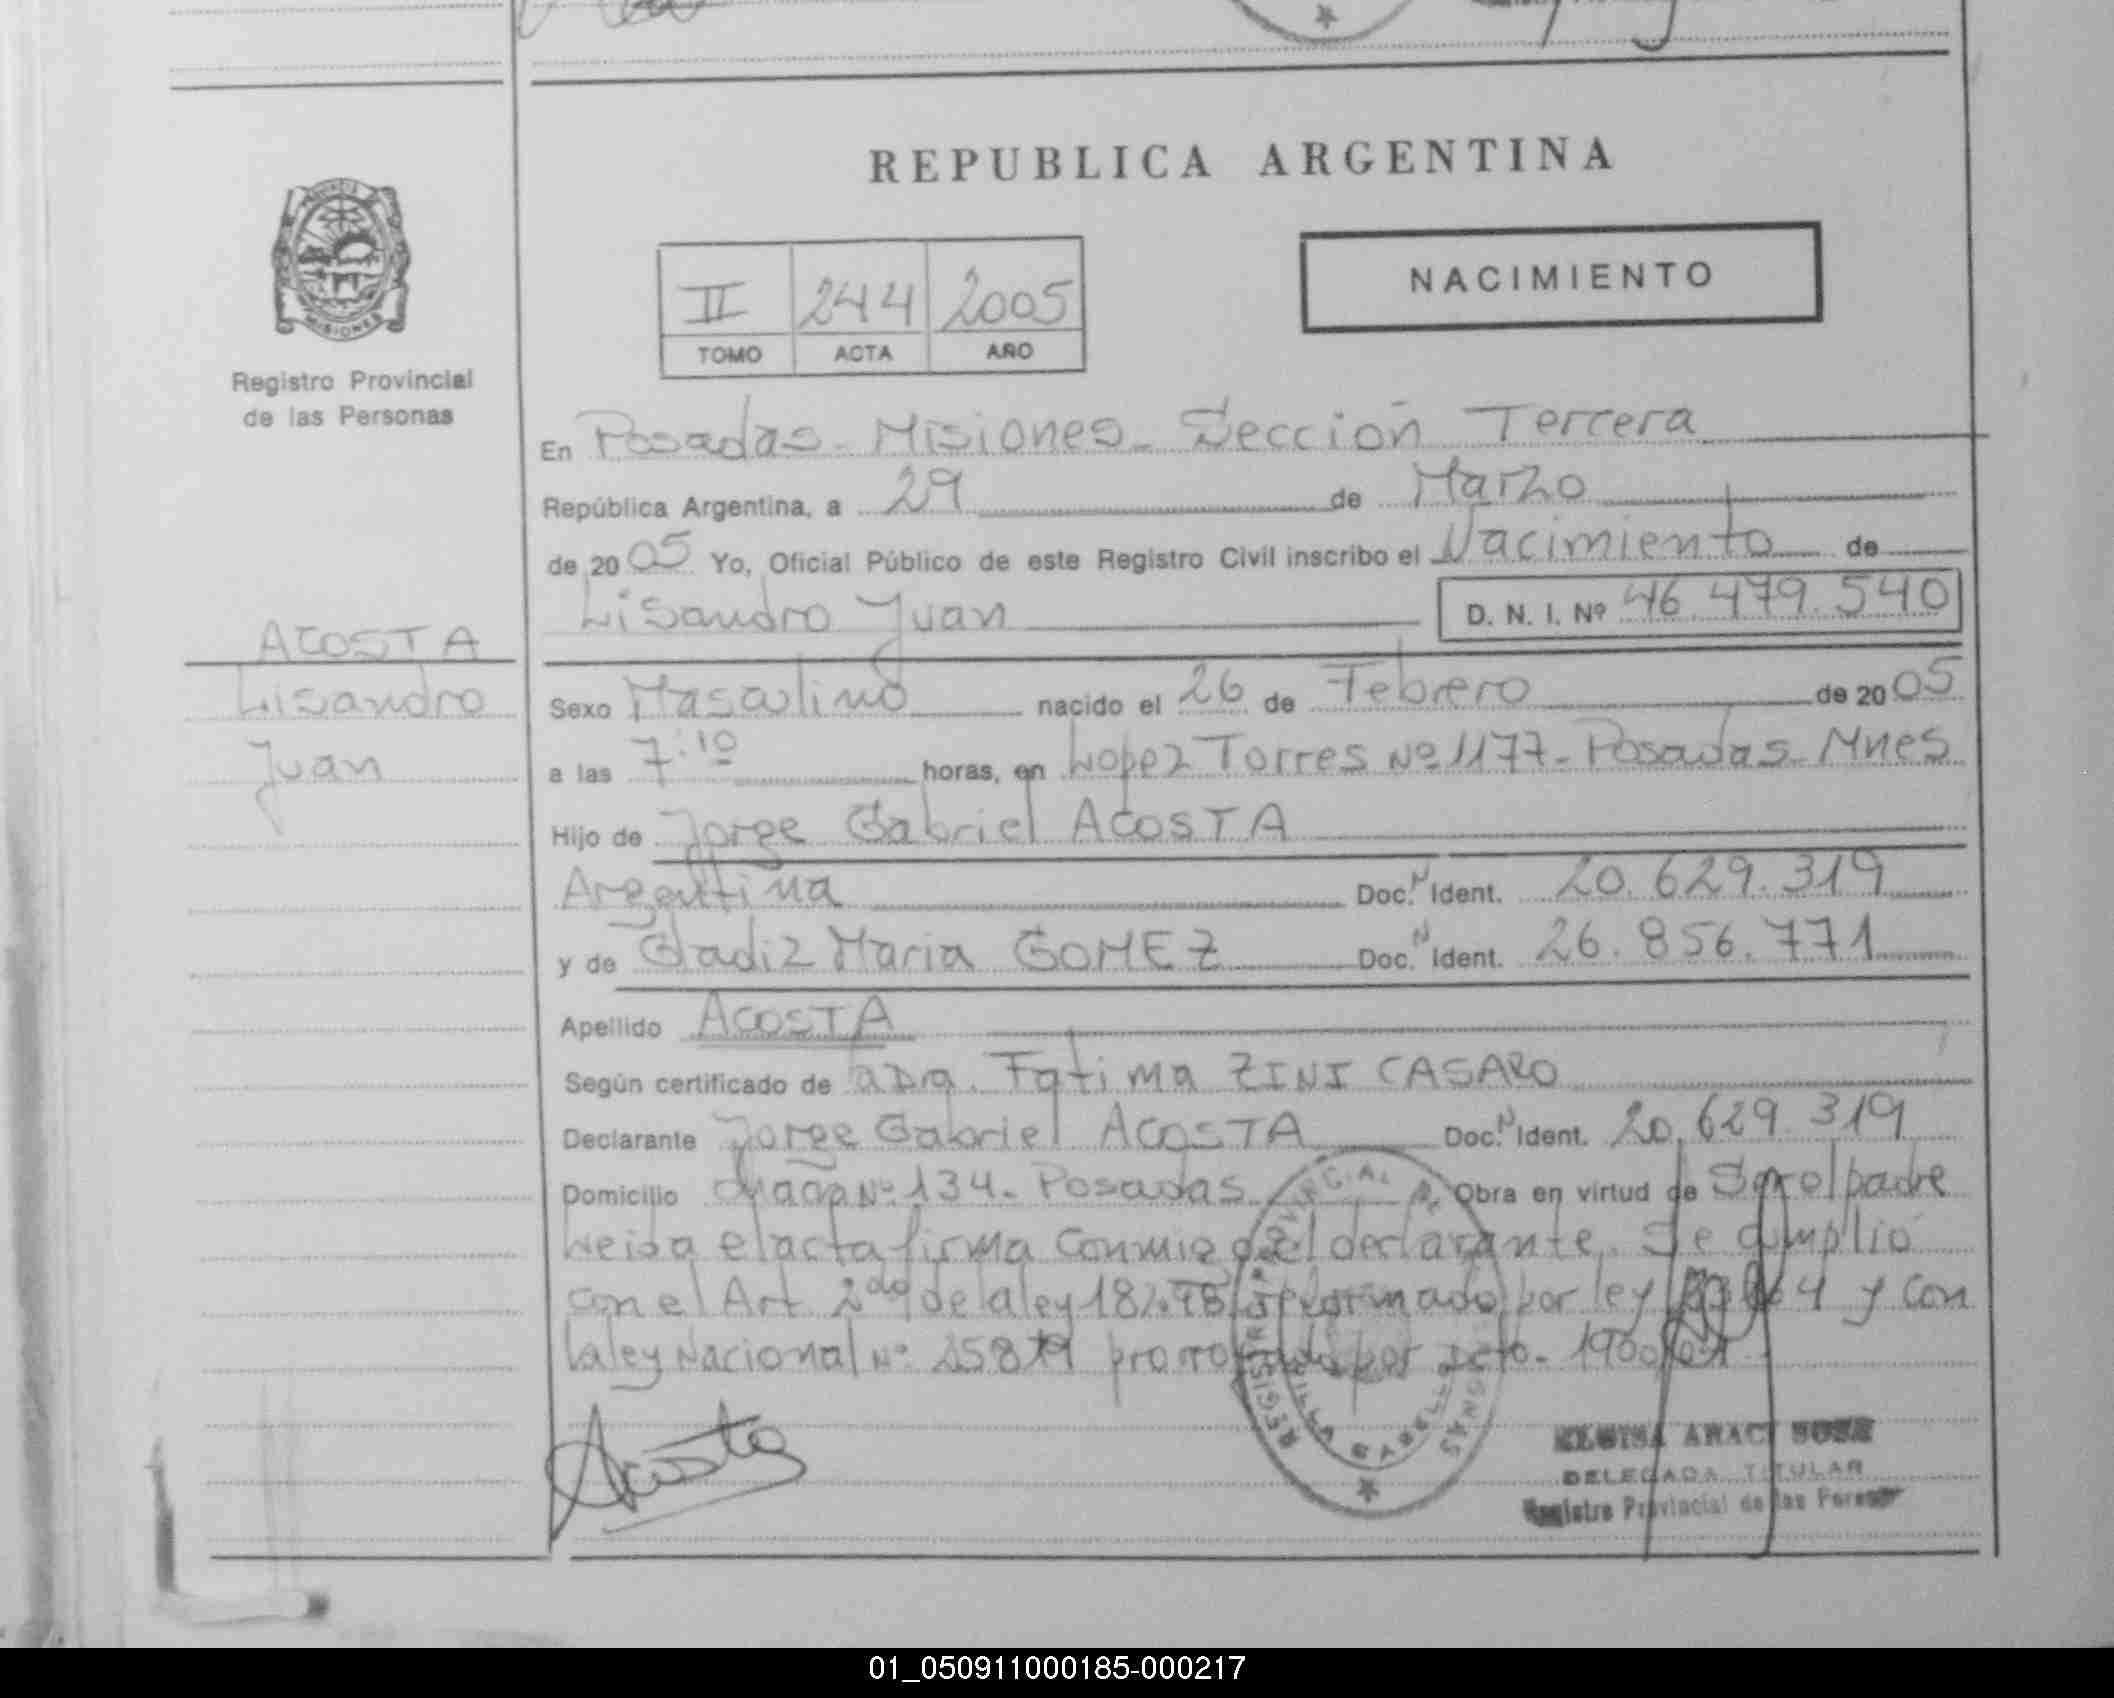 REPUBLICA ARGENTINA
PROVINCIA
MISIONES
Registro Provincial
de las Personas
II 244 2005
TOMO ACTA AÑO
NACIMIENTO
En Posadas - Misiones - Sección Tercera
República Argentina, a 29 de Marzo
de 2005 Yo, Oficial Público de este Registro Civil inscribo el Nacimiento de
Lisandro Juan D. N. I. Nº 46.479.540
ACOSTA
Lisandro
Juan
Sexo Masculino nacido el 26 de Febrero de 2005
a las 7:10 horas, en Lopez Torres Nº 1177 - Posadas - Mnes
Hijo de Jorge Gabriel ACOSTA
Argentina Doc. N Ident. 20.629.319
y de Gladiz Maria GOMEZ Doc. N Ident. 26.856.771
Apellido ACOSTA
Según certificado de la Dra. Fatima ZINI CASARO
Declarante Jorge Gabriel ACOSTA Doc. N Ident. 20.629.319
Domicilio Nº 134 - Posadas Obra en virtud de Ser el padre
Leida el acta firma conmigo el declarante. Se cumplió
con el Art 2do de la ley reformado por ley y con
la ley Nacional Nº prorrogado por Dcto.
Acosta
REGISTRO PROVINCIAL DE LAS PERSONAS
VILLA CABELLO
DELEGADA TITULAR
Registro Provincial de las Personas
01_050911000185-000217